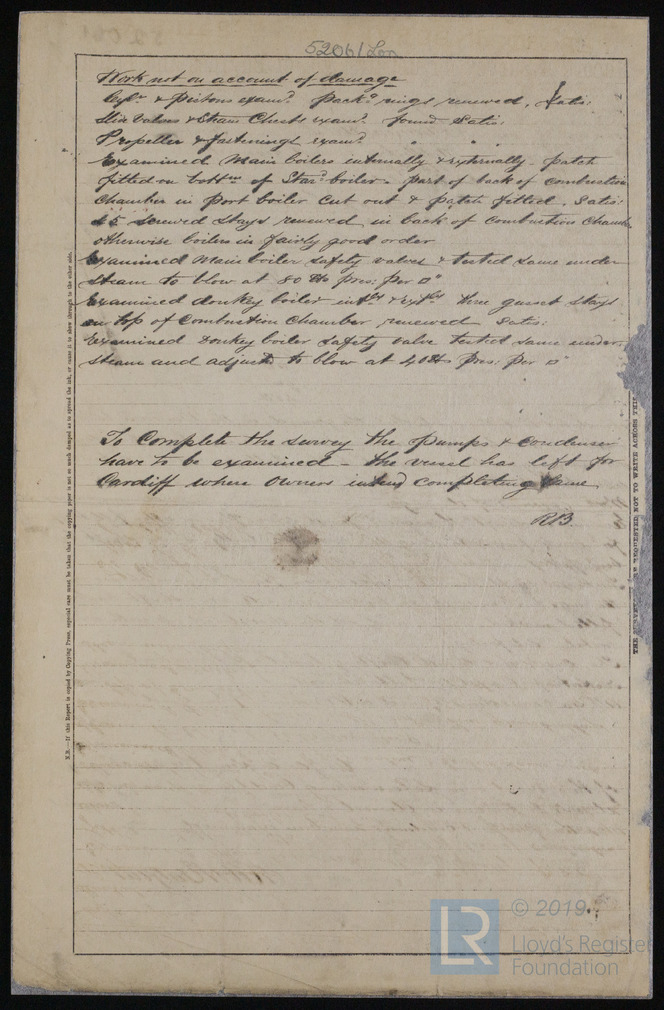 52061 Lon
Work not on account of damage
Cylrs & Pistons examd. Packg rings renewed. Satis:
Slide Valves & Steam Chests examd. found Satis:
Propeller & fastenings examd. " " "
Examined Main boilers internally & externally. patch
fitted on bottm of Stard boiler. part of back of combustion
Chamber in Port boiler cut out & patch fitted. Satis:
45 screwed stays renewed in back of Combustion Chamb
otherwise boilers in fairly good order
Examined Main boiler Safety valves & tested same under
steam to blow at 80 lbs pres: per □"
Examined donkey boiler intly & extly three gusset stays
on top of Combustion Chamber renewed Satis:
Examined Donkey boiler Safety valve tested same under
steam and adjustd to blow at 40 lbs pres: per □"
To Complete the survey the pumps & condenser
have to be examined - the vessel has left for
Cardiff where Owners intend completing same
RB
N.B.—If this Report is copied by Copying Press, especial care must be taken that the copying paper is not so much damped as to spread the ink, or cause it to show through to the other side.
REQUESTED NOT TO WRITE ACROSS THIS
LR
© 2019
Lloyd's Register
Foundation